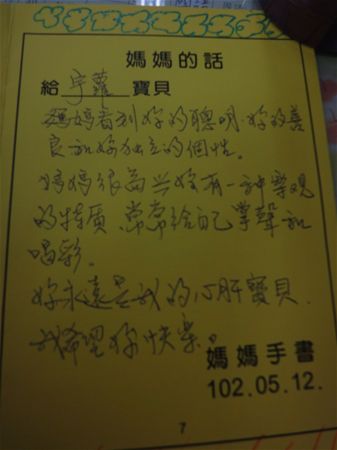 媽媽的話
給 宇蘿 寶貝
媽媽看到妳的聰明、妳的善
良和妳獨立的個性。
媽媽很高興妳有一種樂觀
的特質，常常給自己掌聲和
喝彩。
妳永遠是我的心肝寶貝，
我希望妳快樂。
媽媽手書
102.05.12.
7